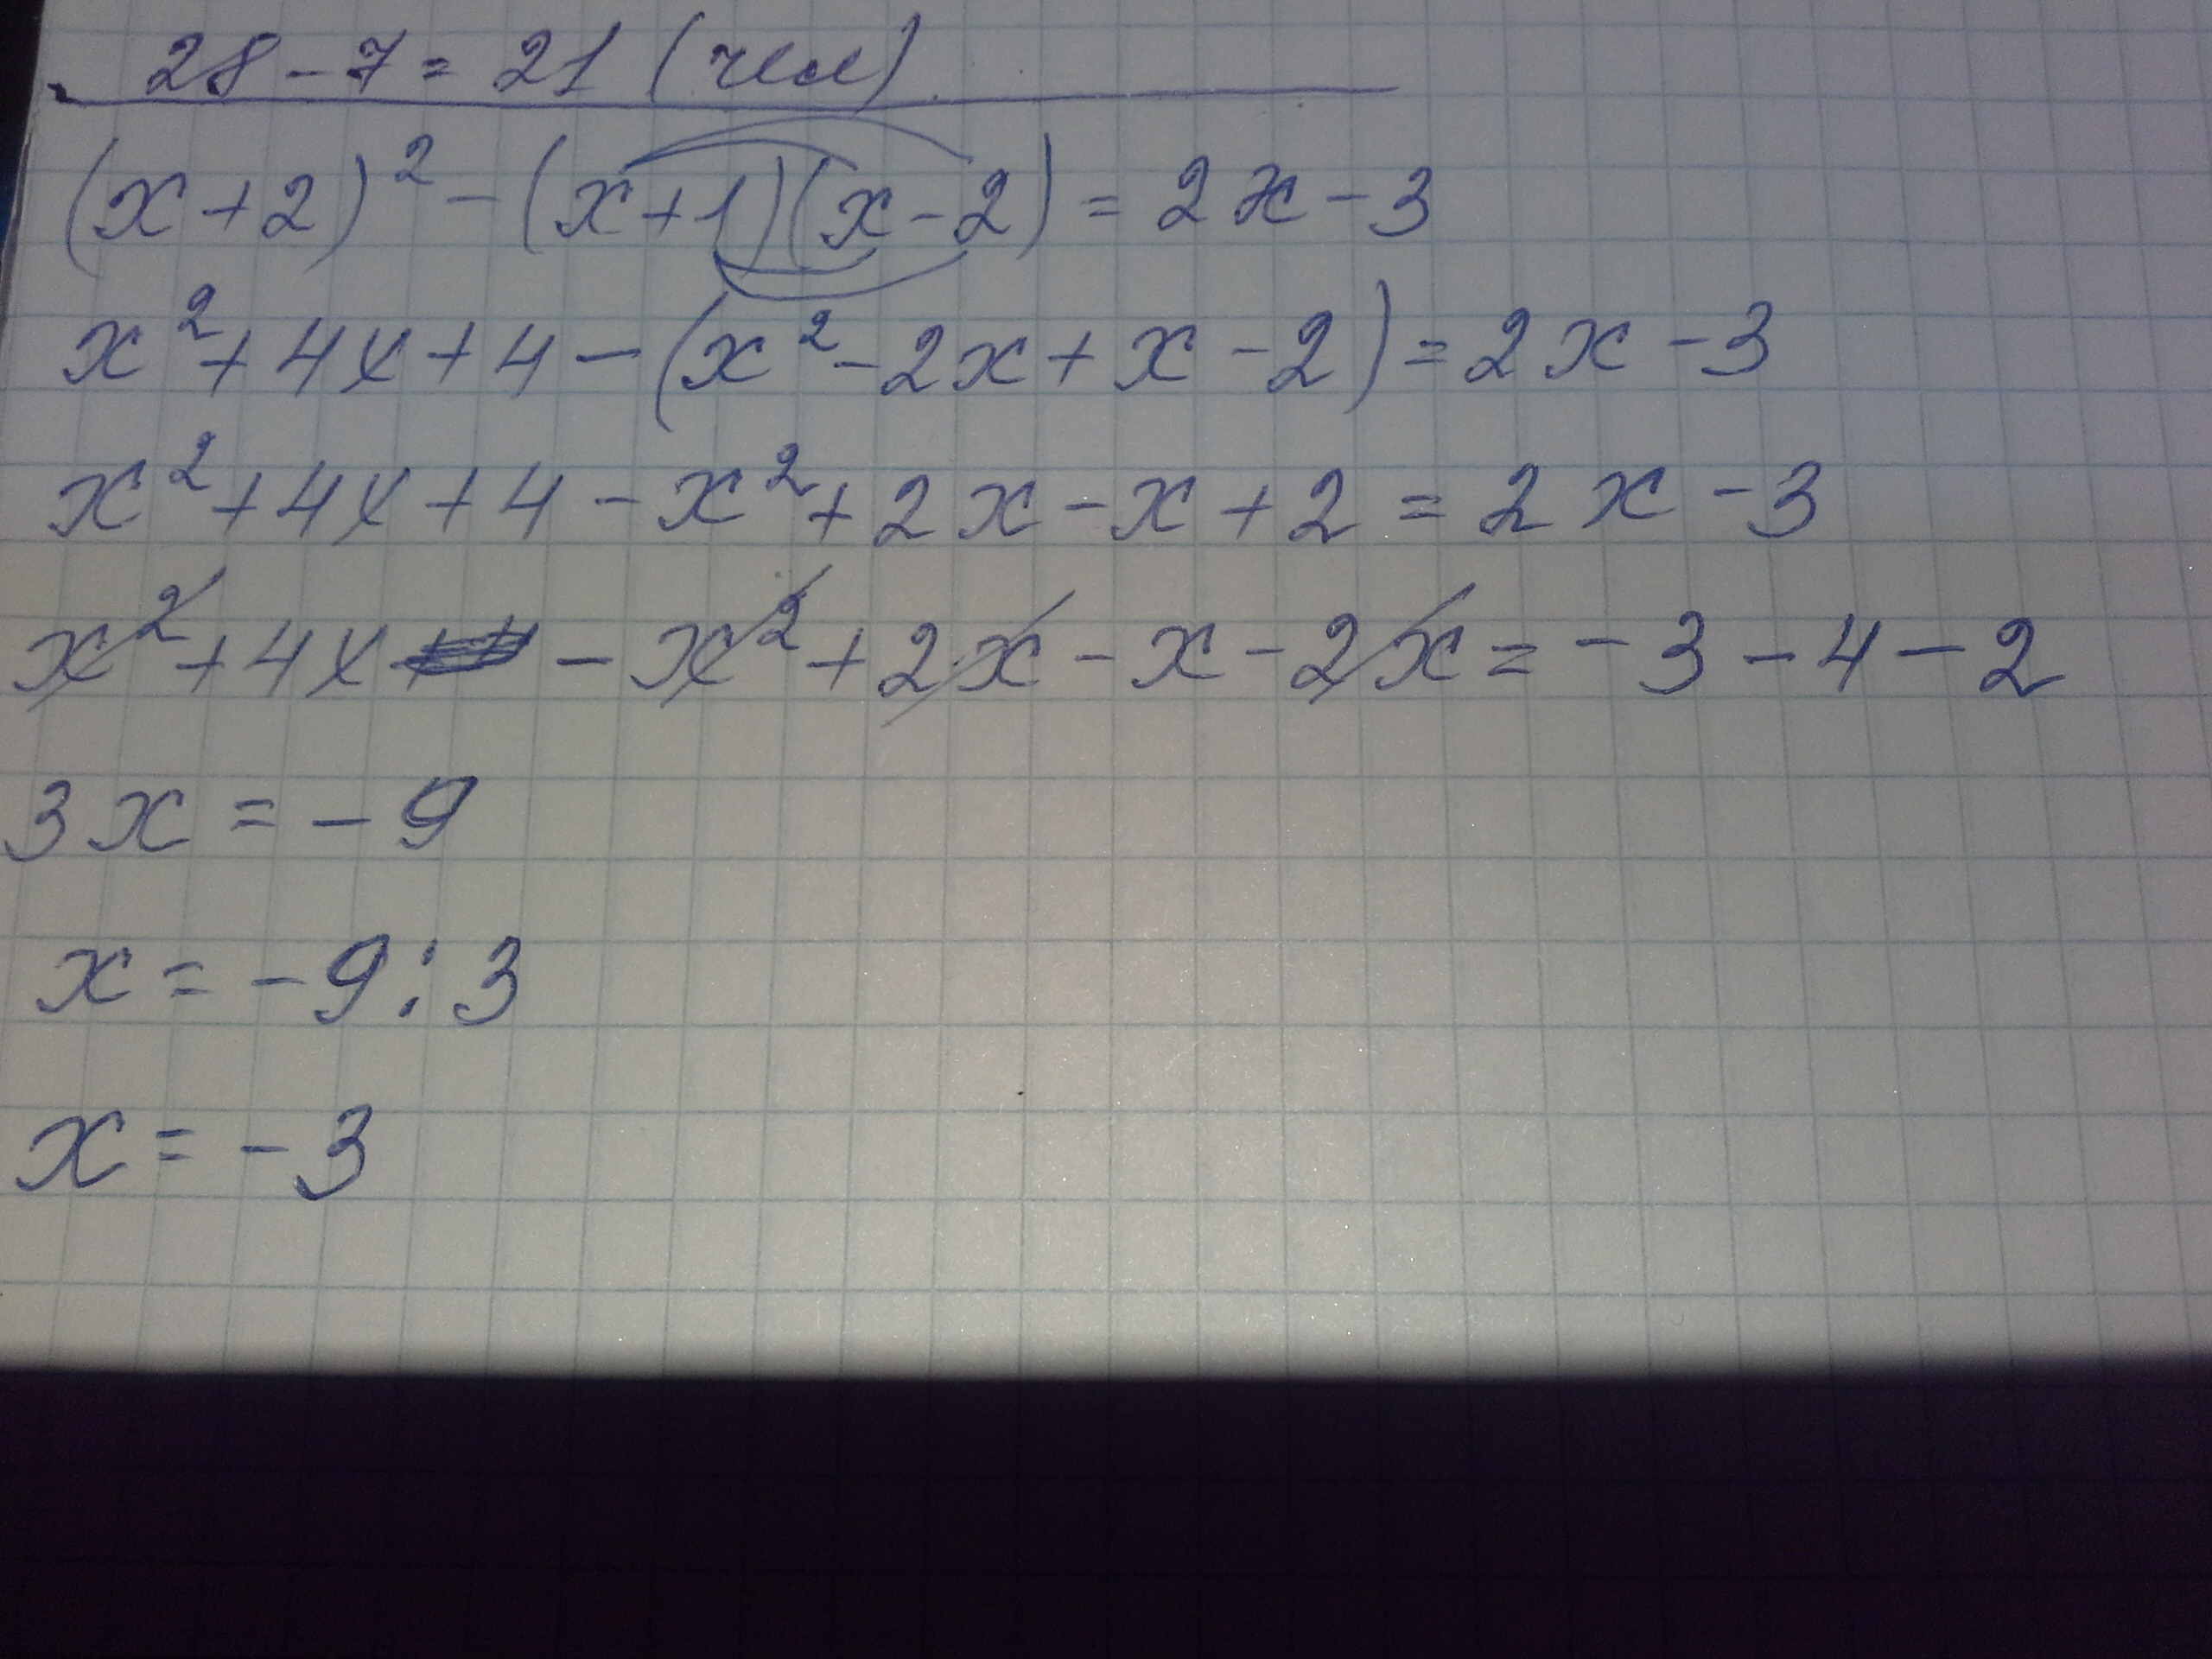 28 - 7 = 21 (чел)
(x+2)² - (x+1)(x-2) = 2x - 3
x² + 4x + 4 - (x² - 2x + x - 2) = 2x - 3
x² + 4x + 4 - x² + 2x - x + 2 = 2x - 3
x² + 4x - x² + 2x - x - 2x = - 3 - 4 - 2
3x = - 9
x = - 9 : 3
x = - 3